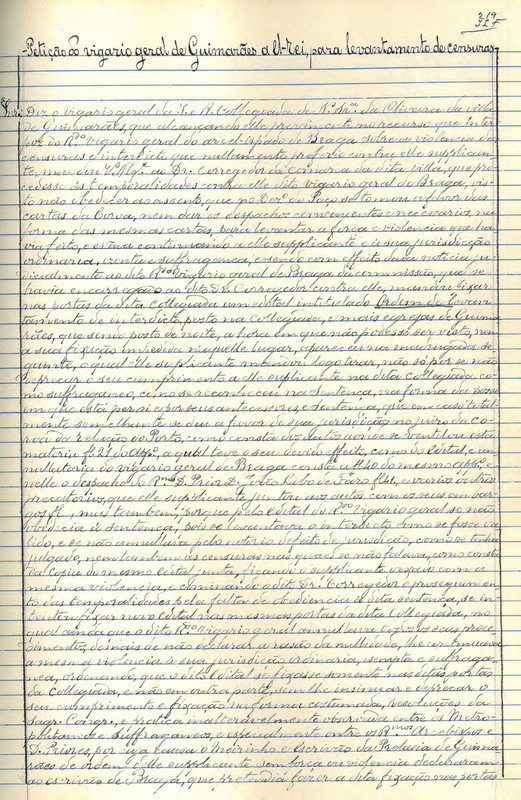 319
Petição do vigario geral de Guimarães a El-rei, para levantamento de censuras
Diz o vigario geral da I. e R. Collegiada de N.ª Snr.ª da Oliveira da villa
de Guimarães, que alcançando elle provimento no recurso que inter
poz do R.do vigario geral do arcebispado de Braga sobre a violencia das
censuras e interdicto que nullamente proferio contra elle supplican
te, mandou V. Mg.e ao Dr. Corregedor da comarca da dita villa, que pro
cedesse ás temporalidades contra elle dito vigario geral de Braga, vis
to não obedecer ao assento, que no Dez.º do Paço se tomou sobre as
cartas da Coroa, nem dar os despachos convenientes e necessarios, na
forma das mesmas cartas, para levantar a força e violencia que ha
via feito, e estava continuando a elle supplicante e á sua jurisdicção
ordinaria, izenta e suffraganea, e sendo com effeito dada noticia ju
dicialmente ao dito R.do Vigario geral de Braga da commissão, que se
havia encarregado ao dito Dr. Corregedor contra elle, mandou fixar
nas portas da dita Collegiada um edital intitulado Ordem de levan
tamento de interdicto, posto na Collegiada, e mais egrejas de Guima
rães, que sendo posto de noite, a hora em que não podesse ser visto, nem
a sua fixação impedida n'aquelle lugar, appareceu na madrugada se
guinte, o qual elle supplicante mandou logo tirar, não só por se não
deprecar o seu cumprimento a elle supplicante na dita Collegiada co
mo suffraganeo, como se reconheceu na sentença, na forma da posse
em que está por si e por seus antecessores e sentença, que em caso total
mente semelhante se deu a favor de sua jurisdicção no juizo da Co
roa da relação do Porto, como consta dos autos aonde se ventilou esta
materia fl. 21 do app.º, a qual teve o seu devido effeito, como do edital, e an
nullatoria do vigario geral de Braga consta a fl. 40 do mesmo app.º, e
nelle o despacho do R.mo D. Prior D. João Lobo de Faro fl. 41, e varios outros
precatorios, que elle supplicante juntou aos autos com os seus em bar
gos fl., mas tambem porque pelo edital do R.do Vigario geral se não
obedecia á sentença, pois se levantava o interdicto como se fosse va
lido, e se não annullava pelo notorio defeito de jurisdicção, como se tinha
julgado, nem tambem as censuras nas quaes se não fallava, como consta
da copia do mesmo edital junta, ficando o supplicante vexado com a
mesma violencia, e cominando o dito Dr. Corregedor o proseguimen
to das temporalidades pela falta de obediencia á dita sentença, se in
tentou fixar novo edital nas mesmas portas da dita Collegiada, no
qual ainda que o dito R.do Vigario geral annullava todos os seus proce
dimentos, demais de não declarar a razão da nullidade, lhe continuava
a mesma violencia á sua jurisdicção ordinaria, izempta e suffraga
nea, ordenando, que o dito edital se fixasse somente nas ditas portas
da Collegiada, e não em outra parte, sem lhe insinuar e deprecar o
seu cumprimento e fixação na forma costumada, resoluções da
Sagr. Congr., e pratica inalteravelmente observada entre os Metro
politanos e Suffraganeos, e especialmente entre os R.mos Arcebispos e
D. Priores, por cuja causa o Meirinho e escrivão da Prelasia de Guima
rães de ordem d'elle supplicante sem força ou violencia declararam
ao escrivão de Braga, que pretendia fazer a dita fixação nas portas